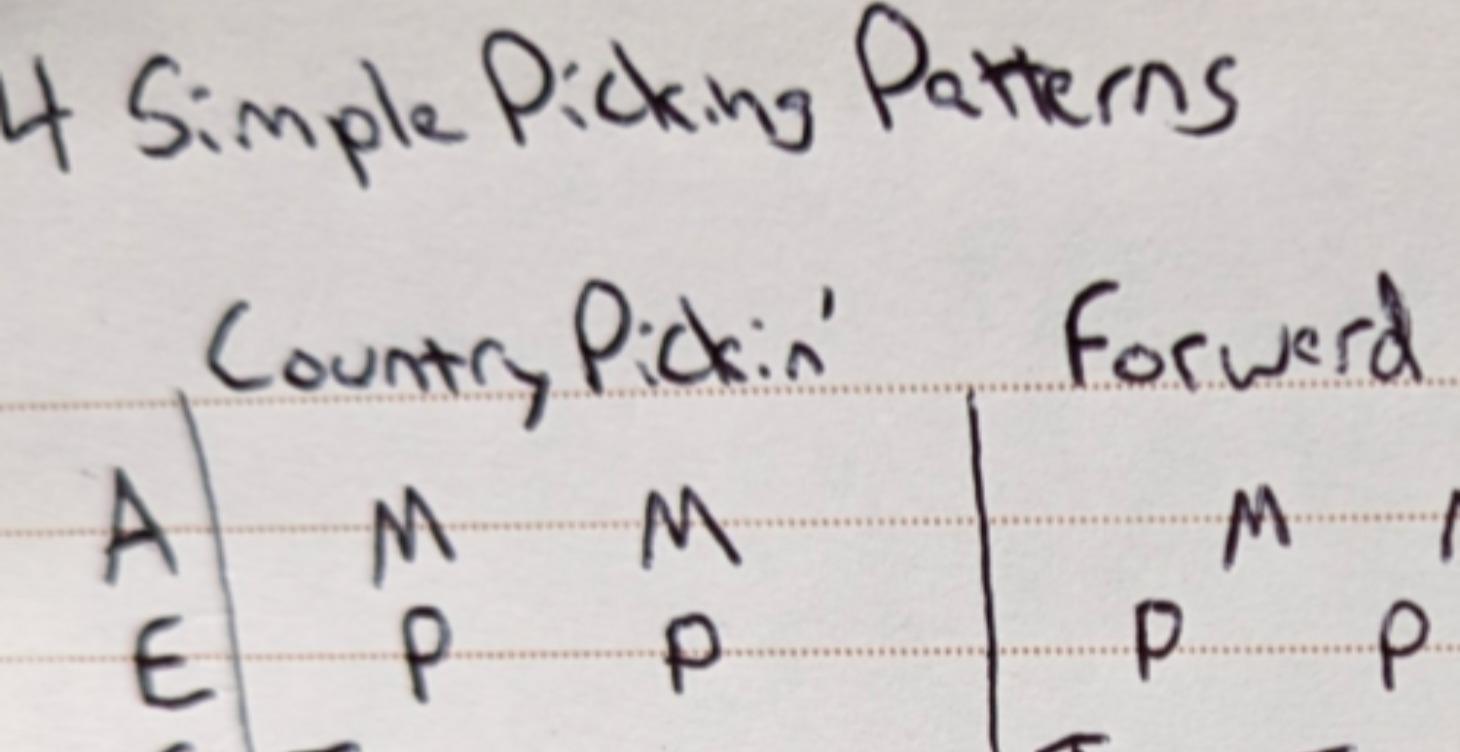 4 Simple Picking Patterns
Country Pickin' Forward
A M M M
E P P P P